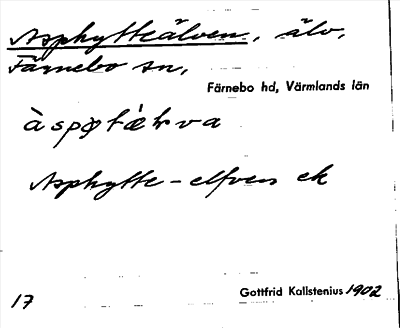 Asphytteälven, älv,
Färnebo sn,
Färnebo hd, Värmlands län
Asphytte-elfven ek
17
Gottfrid Kallstenius 1902